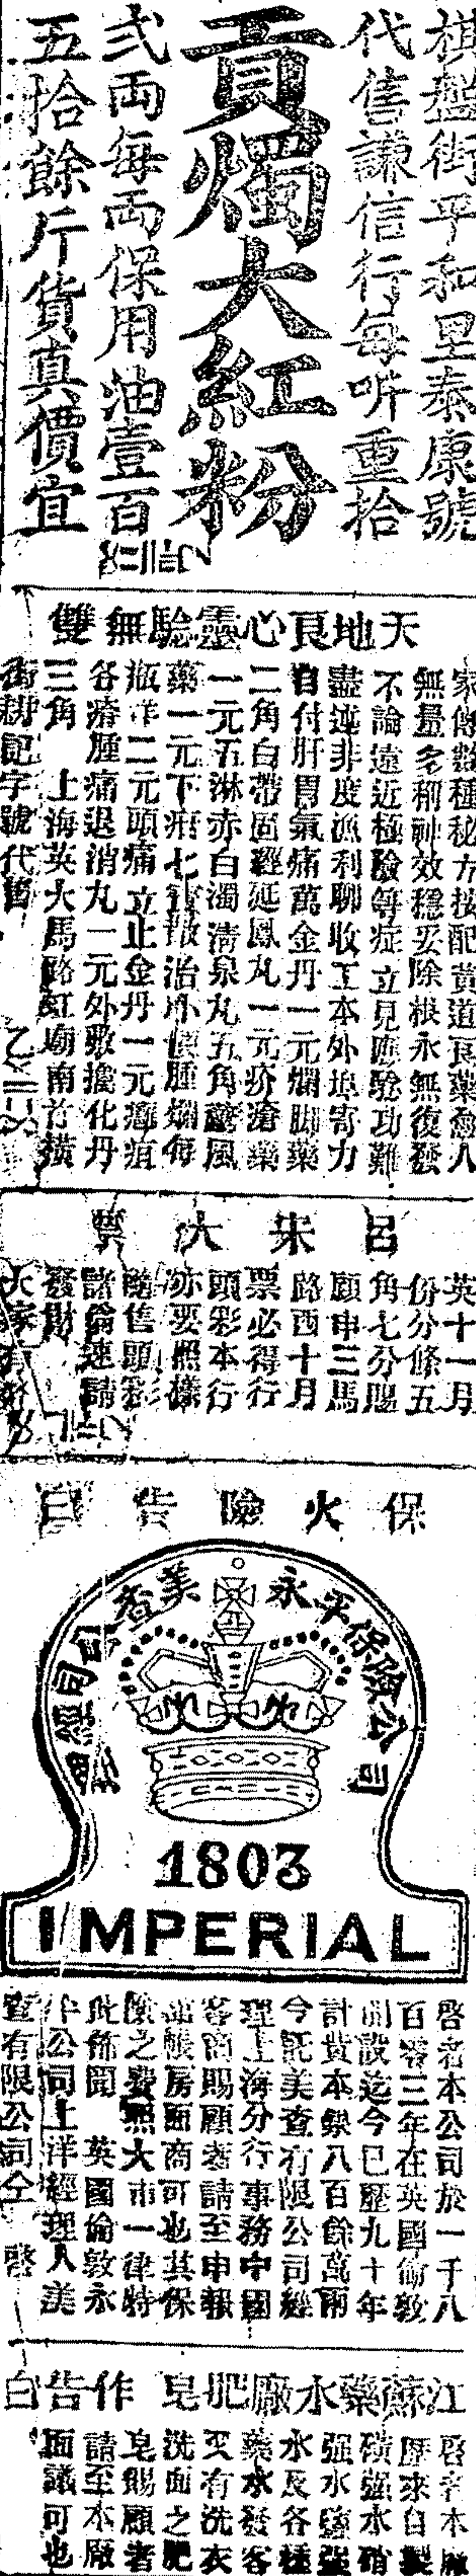 棋盤街平和里泰康號
代售謙信行每听重拾
貢燭大紅粉
弍両每両保用油壹百
五拾餘斤貨真價宜
天地良心靈驗無雙
家傳數種秘方按配黃道良藥愈八
無量多稱神效穩妥除根永無復發
不論遠近極險等症立見應驗功難
盡述非度漁利聊收工本外埠寄力
自付肝胃氣痛萬金丹一元爛脚藥
二角白帶固經延鳳丸一元疥瘡藥
一元五淋赤白濁清泉丸五角驚風
藥一元下疳七寶散治小便腫爛每
瓶洋二元頭痛立止金丹一元癰疽
各瘡腫痛退消丸一元外敷擒化丹
三角 上海英大馬路虹廟南首橫
街耕記字號代售
呂宋大票
英十一月
份分條五
角七分賜
顧申三馬
路西十月
票必得行
頭彩本行
亦要照樣
隨售頭彩
諸倫速請
發財
大家有
保火險告白
永平保險公司
美查公司經理
1803
IMPERIAL
啓者本公司於一千八
百零三年在英國倫敦
開設迄今已歷九十年
計貲本銀八百餘萬兩
今託美查有限公司經
理上海分行事務中國
客商賜顧者請至申報
館帳房面商可也其保
險之費照大市一律特
此佈聞 英國倫敦永
平公司上洋經理人美
查有限公司仝 啓
江蘇藥水廠肥皂作告白
啓者本廠
歷來自製
磺强水硝
强水鹽强
水及各種
藥水發客
又有洗衣
洗面之肥
皂賜顧者
請至本廠
面議可也